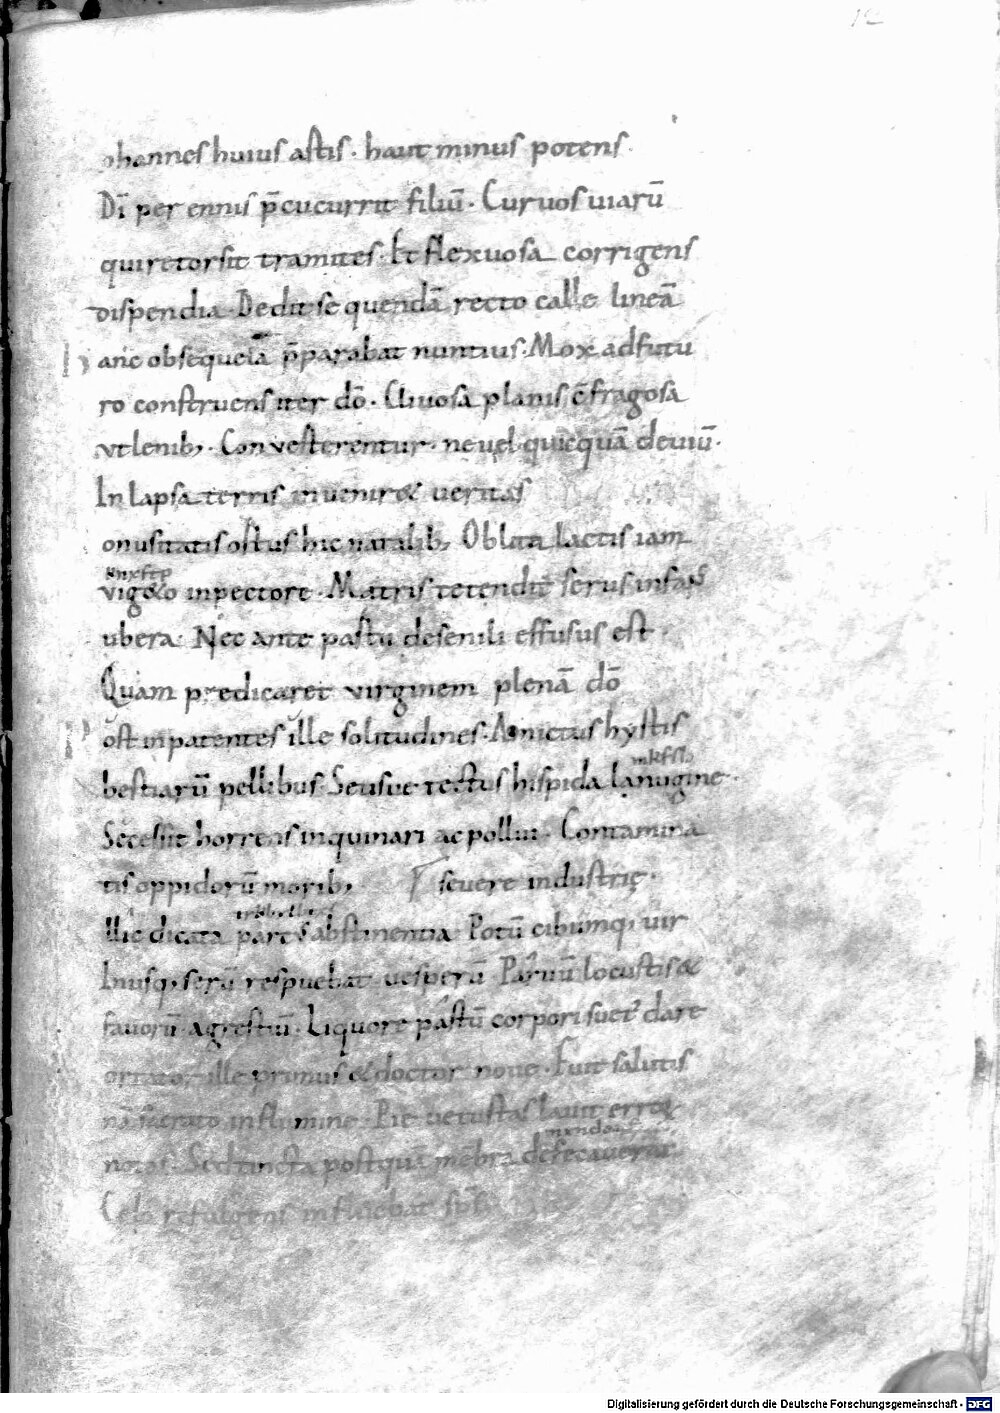 12
ohannes huius astis · haut minus potens ·
Dī per ennis p̄cucurrit filiū · Curuos uiarū
qui retorsit tramites · Et flexuosa corrigens
dispendia · Dedit se quendā recto calle lineā
H anc obsequelā p̄parabat nuntius · Mox adfutu
ro construens iter dō · Cliuosa planis c̄fragosa
vt lenib; · Conuesterentur · ne uel quicquā deuiū ·
In lapsa terris inuenir& ueritas
on usitatis ostus hic natalib; Oblita lactis iam
vig&o in pectore · Matris tetendit serus infans
ubera · Nec ante partu de senili effusus est ·
Quam predicaret virginem plenā dō
P ost in patentes ille solitudines · Amictus hystis
bestiarū pellibus · Seu sue tectus hispida lanugine ·
Secessit horrens inquinari ac pollui · Contamina
tis oppidorū morib; seuere industrię ·
Illic dicata parcus abstinentia · Potū cibumq; uir
huiusq; serū respuebat uesperū · Paruū locustis &
fauorū agrestiū · Liquore pastū corpori suet dare
ortator ille primus & doctor noue · Fuit salutis
nā sacrato in flumine · Pie uetustas lauit erro&
notas · Sed tincta postquā mēbra defecauerat
Celo refulgens influebat sp̄s
Digitalisierung gefördert durch die Deutsche Forschungsgemeinschaft - DFG